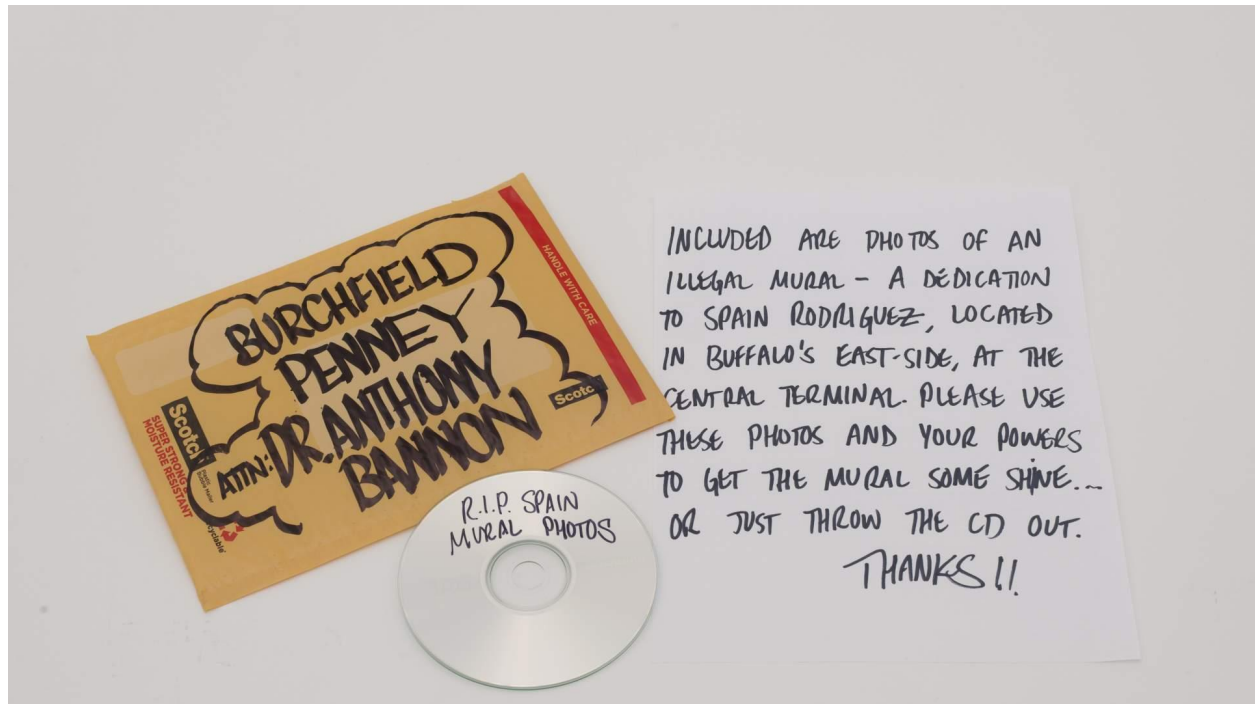 BURCHFIELD
PENNEY
ATTN: DR. ANTHONY
BANNON
HANDLE WITH CARE
Scotch
SUPER STRONG &
MOISTURE RESISTANT
R.I.P. SPAIN
MURAL PHOTOS
INCLUDED ARE PHOTOS OF AN
ILLEGAL MURAL – A DEDICATION
TO SPAIN RODRIGUEZ, LOCATED
IN BUFFALO'S EAST-SIDE, AT THE
CENTRAL TERMINAL. PLEASE USE
THESE PHOTOS AND YOUR POWERS
TO GET THE MURAL SOME SHINE...
OR JUST THROW THE CD OUT.
THANKS!!